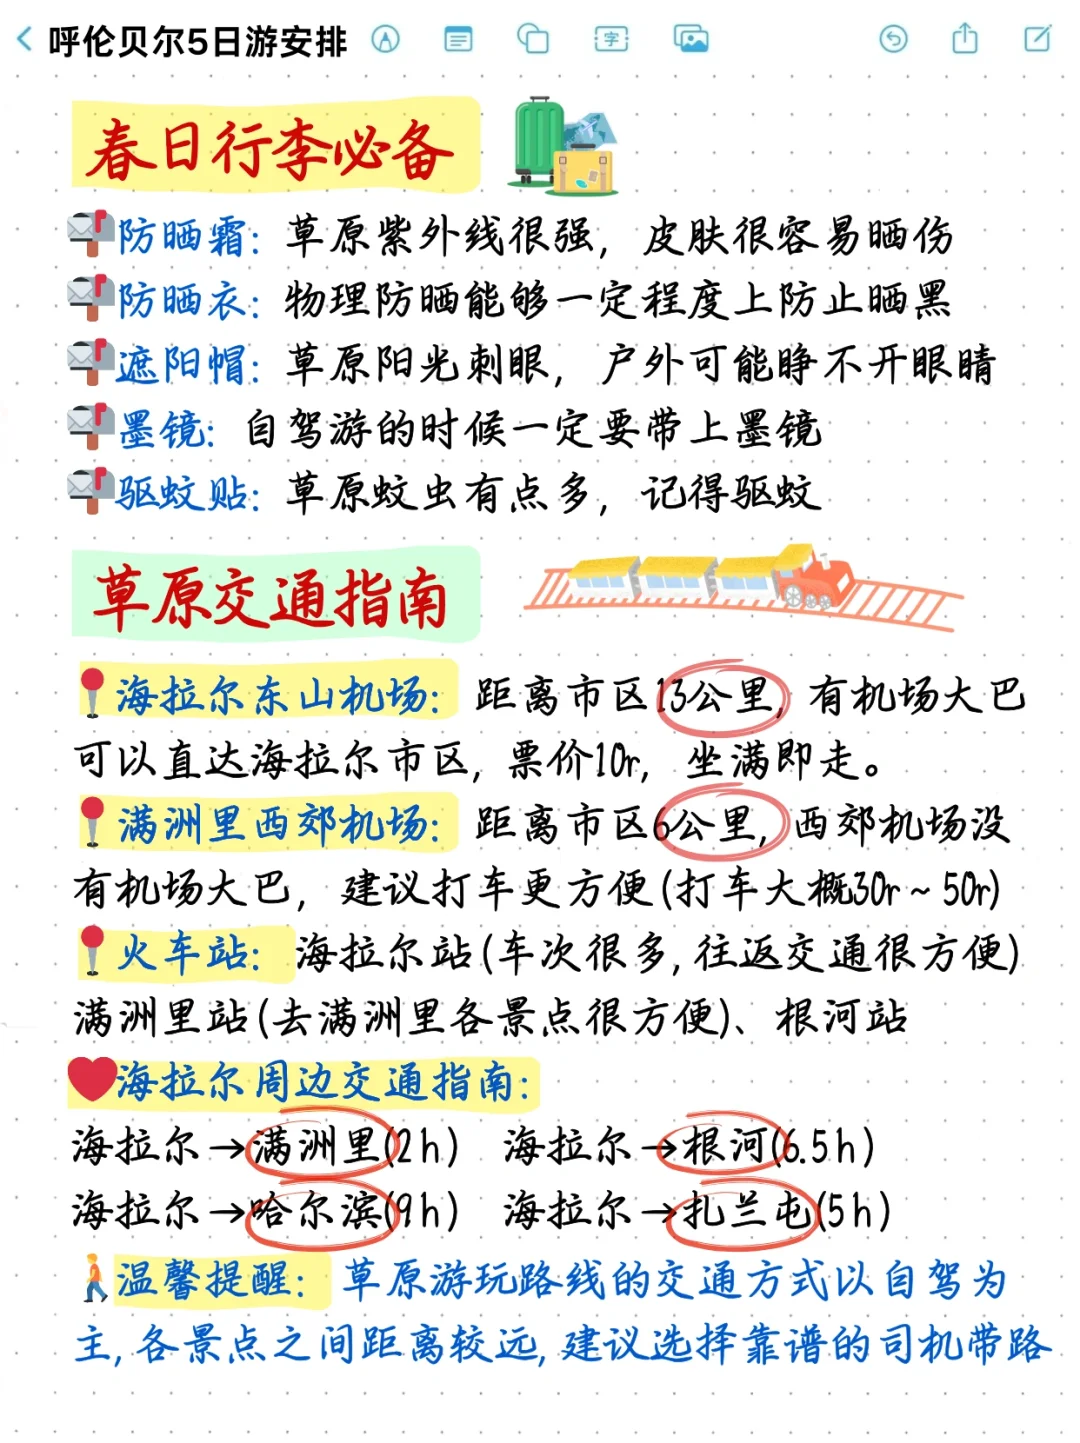 呼伦贝尔5日游安排
字
春日行李必备
防晒霜：草原紫外线很强，皮肤很容易晒伤
防晒衣：物理防晒能够一定程度上防止晒黑
遮阳帽：草原阳光刺眼，户外可能睁不开眼睛
墨镜：自驾游的时候一定要带上墨镜
驱蚊贴：草原蚊虫有点多，记得驱蚊
草原交通指南
海拉尔东山机场：距离市区13公里，有机场大巴
可以直达海拉尔市区，票价10r，坐满即走。
满洲里西郊机场：距离市区6公里，西郊机场没
有机场大巴，建议打车更方便(打车大概30r~50r)
火车站：海拉尔站(车次很多,往返交通很方便)
满洲里站(去满洲里各景点很方便)、根河站
海拉尔周边交通指南：
海拉尔→满洲里(2h) 海拉尔→根河(6.5h)
海拉尔→哈尔滨(9h) 海拉尔→扎兰屯(5h)
温馨提醒：草原游玩路线的交通方式以自驾为
主,各景点之间距离较远,建议选择靠谱的司机带路